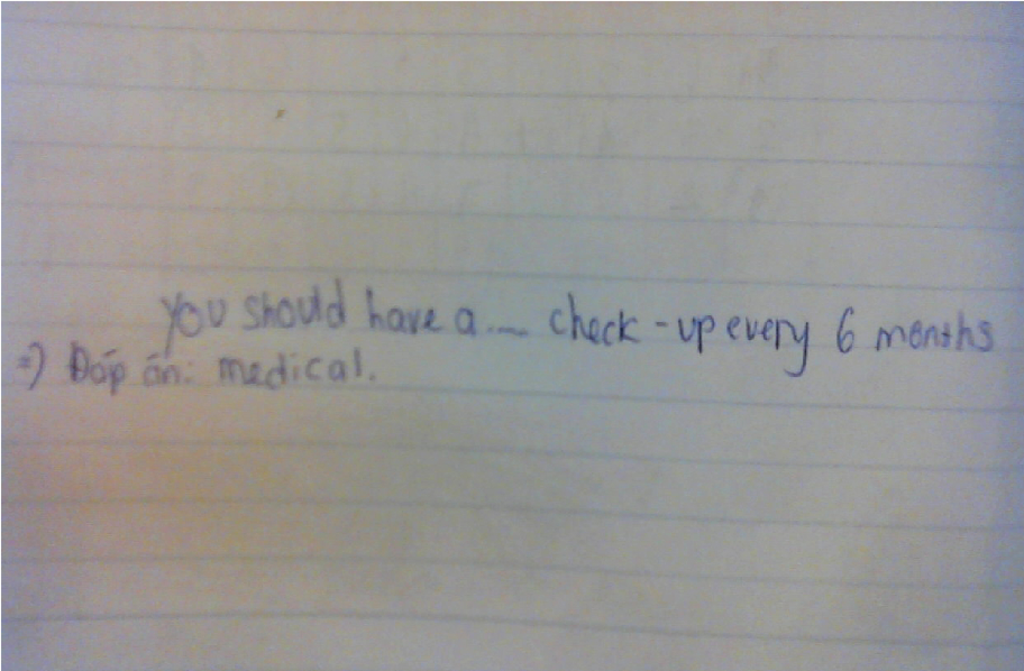 you should have a.... check-up every 6 months
=) Đáp án: medical.